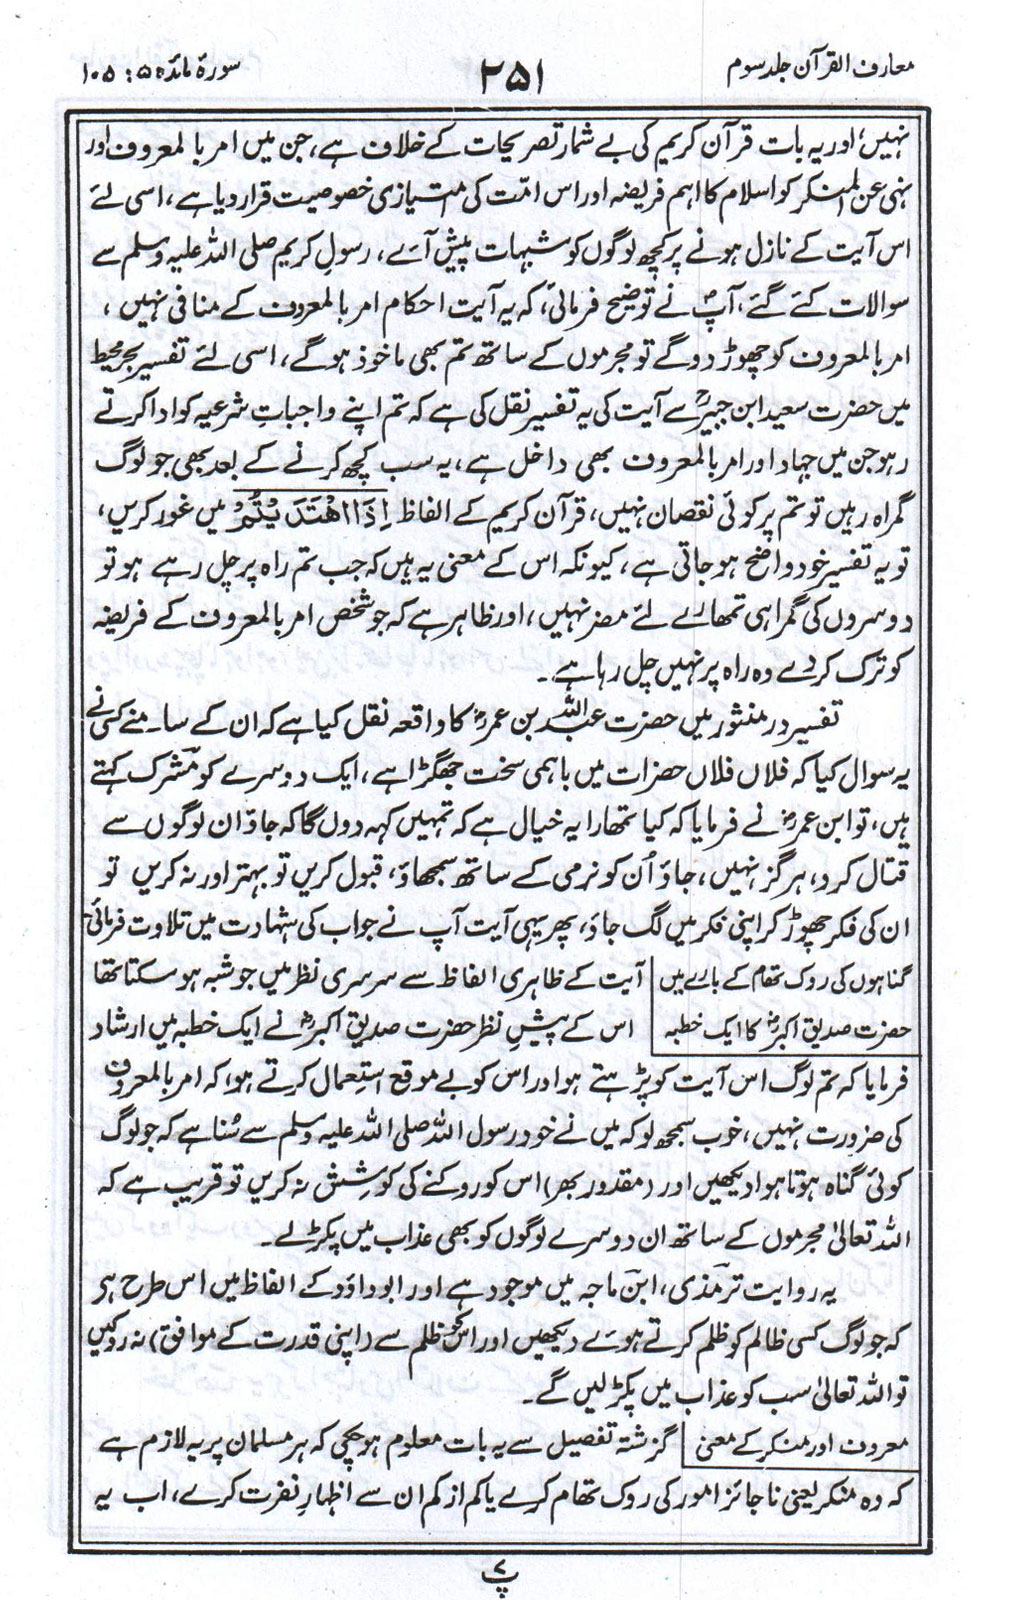 معارف القرآن جلد سوم
۲۵۱
سورۂ مائدہ ۵ : ۱۰۵
نہیں؛ اور یہ بات قرآن کریم کی بے شمار تصریحات کے خلاف ہے، جن میں امر بالمعروف اور
نہی عن المنکر کو اسلام کا اہم فریضہ اور اس امّت کی امتیازی خصوصیت قرار دیا ہے، اسی لئے
اس آیت کے نازل ہونے پر کچھ لوگوں کو شبہات پیش آئے، رسول کریم صلی اللہ علیہ وسلم سے
سوالات کئے گئے، آپؐ نے توضیح فرمائی، کہ یہ آیت احکام امر بالمعروف کے منافی نہیں،
امر بالمعروف کو چھوڑ دو گے تو مجرموں کے ساتھ تم بھی ماخوذ ہو گے، اسی لئے تفسیر بحر محیط
میں حضرت سعید ابن جبیرؒ سے آیت کی یہ تفسیر نقل کی ہے کہ تم اپنے واجباتِ شرعیہ کو ادا کرتے
رہو جن میں جہاد اور امر بالمعروف بھی داخل ہے، یہ سب کچھ کرنے کے بعد بھی جو لوگ
گمراہ رہیں تو تم پر کوئی نقصان نہیں، قرآن کریم کے الفاظ اِذَا اهْتَدَيْتُمْ میں غور کریں،
تو یہ تفسیر خود واضح ہو جاتی ہے، کیونکہ اس کے معنی یہ ہیں کہ جب تم راہ پر چل رہے ہو تو
دوسروں کی گمراہی تمھارے لئے مضر نہیں، اور ظاہر ہے کہ جو شخص امر بالمعروف کے فریضہ
کو ترک کر دے وہ راہ پر نہیں چل رہا ہے۔
تفسیر درمنثور میں حضرت عبد اللہ بن عمرؓ کا واقعہ نقل کیا ہے کہ ان کے سامنے کسی نے
یہ سوال کیا کہ فلاں فلاں حضرات میں باہمی سخت جھگڑا ہے، ایک دوسرے کو مشرک کہتے
ہیں، تو ابن عمرؓ نے فرمایا کہ کیا تمھارا یہ خیال ہے کہ تمہیں کہہ دوں گا کہ جاؤ ان لوگوں سے
قتال کرو، ہرگز نہیں، جاؤ اُن کو نرمی کے ساتھ سمجھاؤ، قبول کریں تو بہتر اور نہ کریں تو
ان کی فکر چھوڑ کر اپنی فکر میں لگ جاؤ، پھر یہی آیت آپ نے جواب کی شہادت میں تلاوت فرمائی
گناہوں کی روک تھام کے بارے میں آیت کے ظاہری الفاظ سے سرسری نظر میں جو شبہ ہو سکتا تھا
حضرت صدیق اکبرؓ کا ایک خطبہ اس کے پیشِ نظر حضرت صدیق اکبرؓ نے ایک خطبہ میں ارشاد
فرمایا کہ تم لوگ اس آیت کو پڑہتے ہو اور اس کو بے موقع استعمال کرتے ہو، کہ امر بالمعروف
کی ضرورت نہیں، خوب سمجھ لو کہ میں نے خود رسول اللہ صلی اللہ علیہ وسلم سے سُنا ہے کہ جو لوگ
کوئی گناہ ہوتا ہوا دیکھیں اور (مقدور بھر) اس کو روکنے کی کوشش نہ کریں تو قریب ہے کہ
اللہ تعالیٰ مجرموں کے ساتھ ان دوسرے لوگوں کو بھی عذاب میں پکڑ لے۔
یہ روایت ترمذی، ابن ماجہ میں موجود ہے اور ابو داؤد کے الفاظ میں اس طرح ہی
کہ جو لوگ کسی ظالم کو ظلم کرتے ہوئے دیکھیں اور اس کو ظلم سے (اپنی قدرت کے موافق) نہ روکیں
تو اللہ تعالیٰ سب کو عذاب میں پکڑ لیں گے۔
معروف اور منکر کے معنی گزشتہ تفصیل سے یہ بات معلوم ہو چکی کہ ہر مسلمان پر یہ لازم ہے
کہ وہ منکر یعنی ناجائز امور کی روک تھام کرے یا کم از کم ان سے اظہارِ نفرت کرے، اب یہ